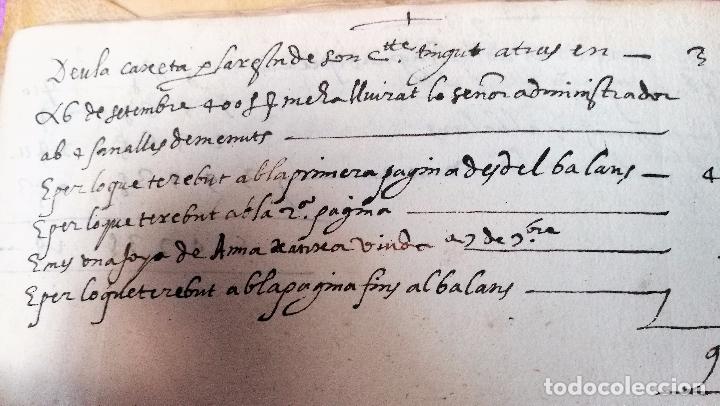 Deu la caxeta p la resta de son Ctte. tingut atras en — 3
A 6 de setembre 400 ll me ha lliurat lo señor administrador
ab 4 sanalles de menuts
E per lo que te rebut ab la primera pagina des del balans — 4
E per lo que te rebut ab la 2ª. pagina
E mes una joya de Anna viuda a 7 de 9bre
E per lo que te rebut ab la pagina fins al balans
7
9
todocoleccion
todocoleccion.net